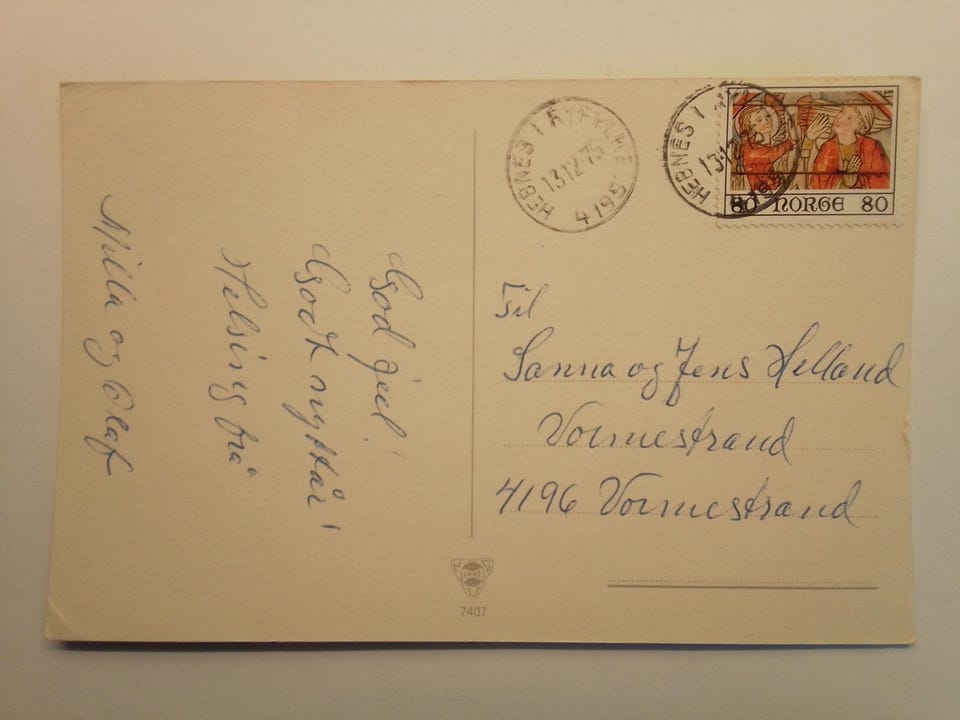 God jul!
Godt nyttår!
Helsing frå
Milla og Olaf
HEBNES I RYFYLKE
13.12-75
4198
HEBNES I
13.12
80 NORGE 80
Til
Sanna og Jens Helland
Vormestrand
4196 Vormestrand
7407